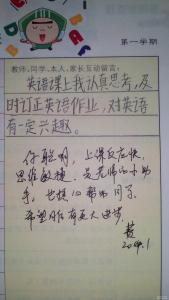 第一学期
教师、同学、本人、家长互动留言：
英语课上我认真思考,及
时订正英语作业，对英语
有一定兴趣。
你聪明，上课反应快，
思维敏捷，是老师的小助
手，也热心帮助同学。
希望你有更大进步。
2014.1